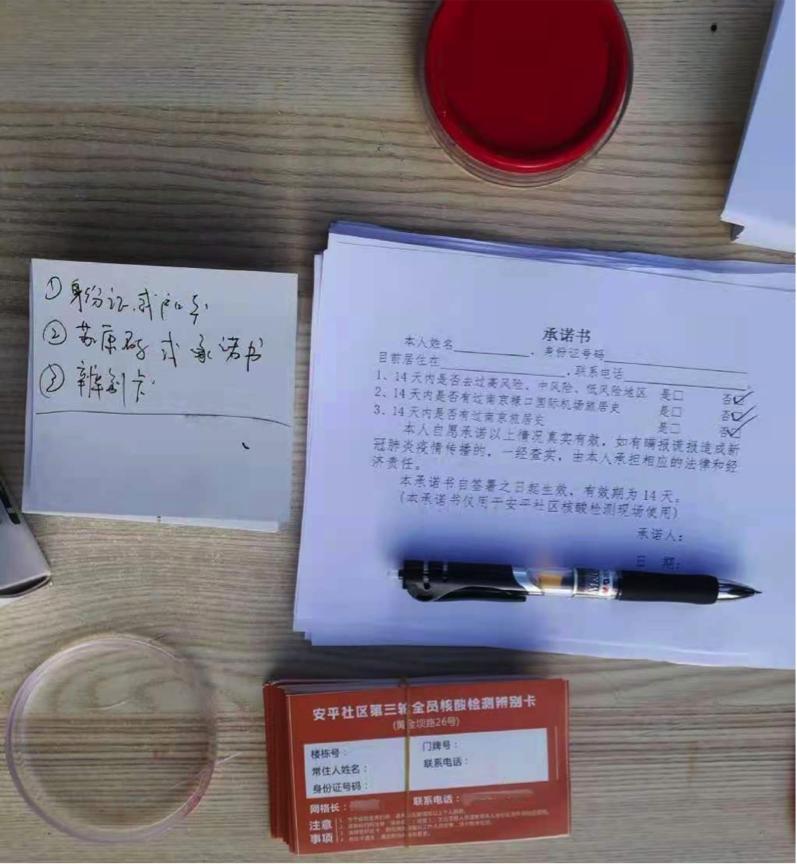 ①身份证或户口本
②苏康码 或 承诺书
③辨别卡
承诺书
本人姓名________，身份证号码________
目前居住在________，联系电话________。
1、14天内是否去过高风险、中风险、低风险地区 是□ 否☑
2、14天内是否有过南京禄口国际机场旅居史 是□ 否☑
3、14天内是否有过南京旅居史 是□ 否☑
本人自愿承诺以上情况真实有效，如有瞒报谎报造成新
冠肺炎疫情传播的，一经查实，由本人承担相应的法律和经
济责任。
本承诺书自签署之日起生效，有效期为14天。
(本承诺书仅用于安平社区核酸检测现场使用)
承诺人：
日 期：
安平社区第三轮全员核酸检测辨别卡
(黄金坝路26号)
楼栋号： 门牌号：
常住人姓名： 联系电话：
身份证号码：
网格长： 联系电话：
注意
事项